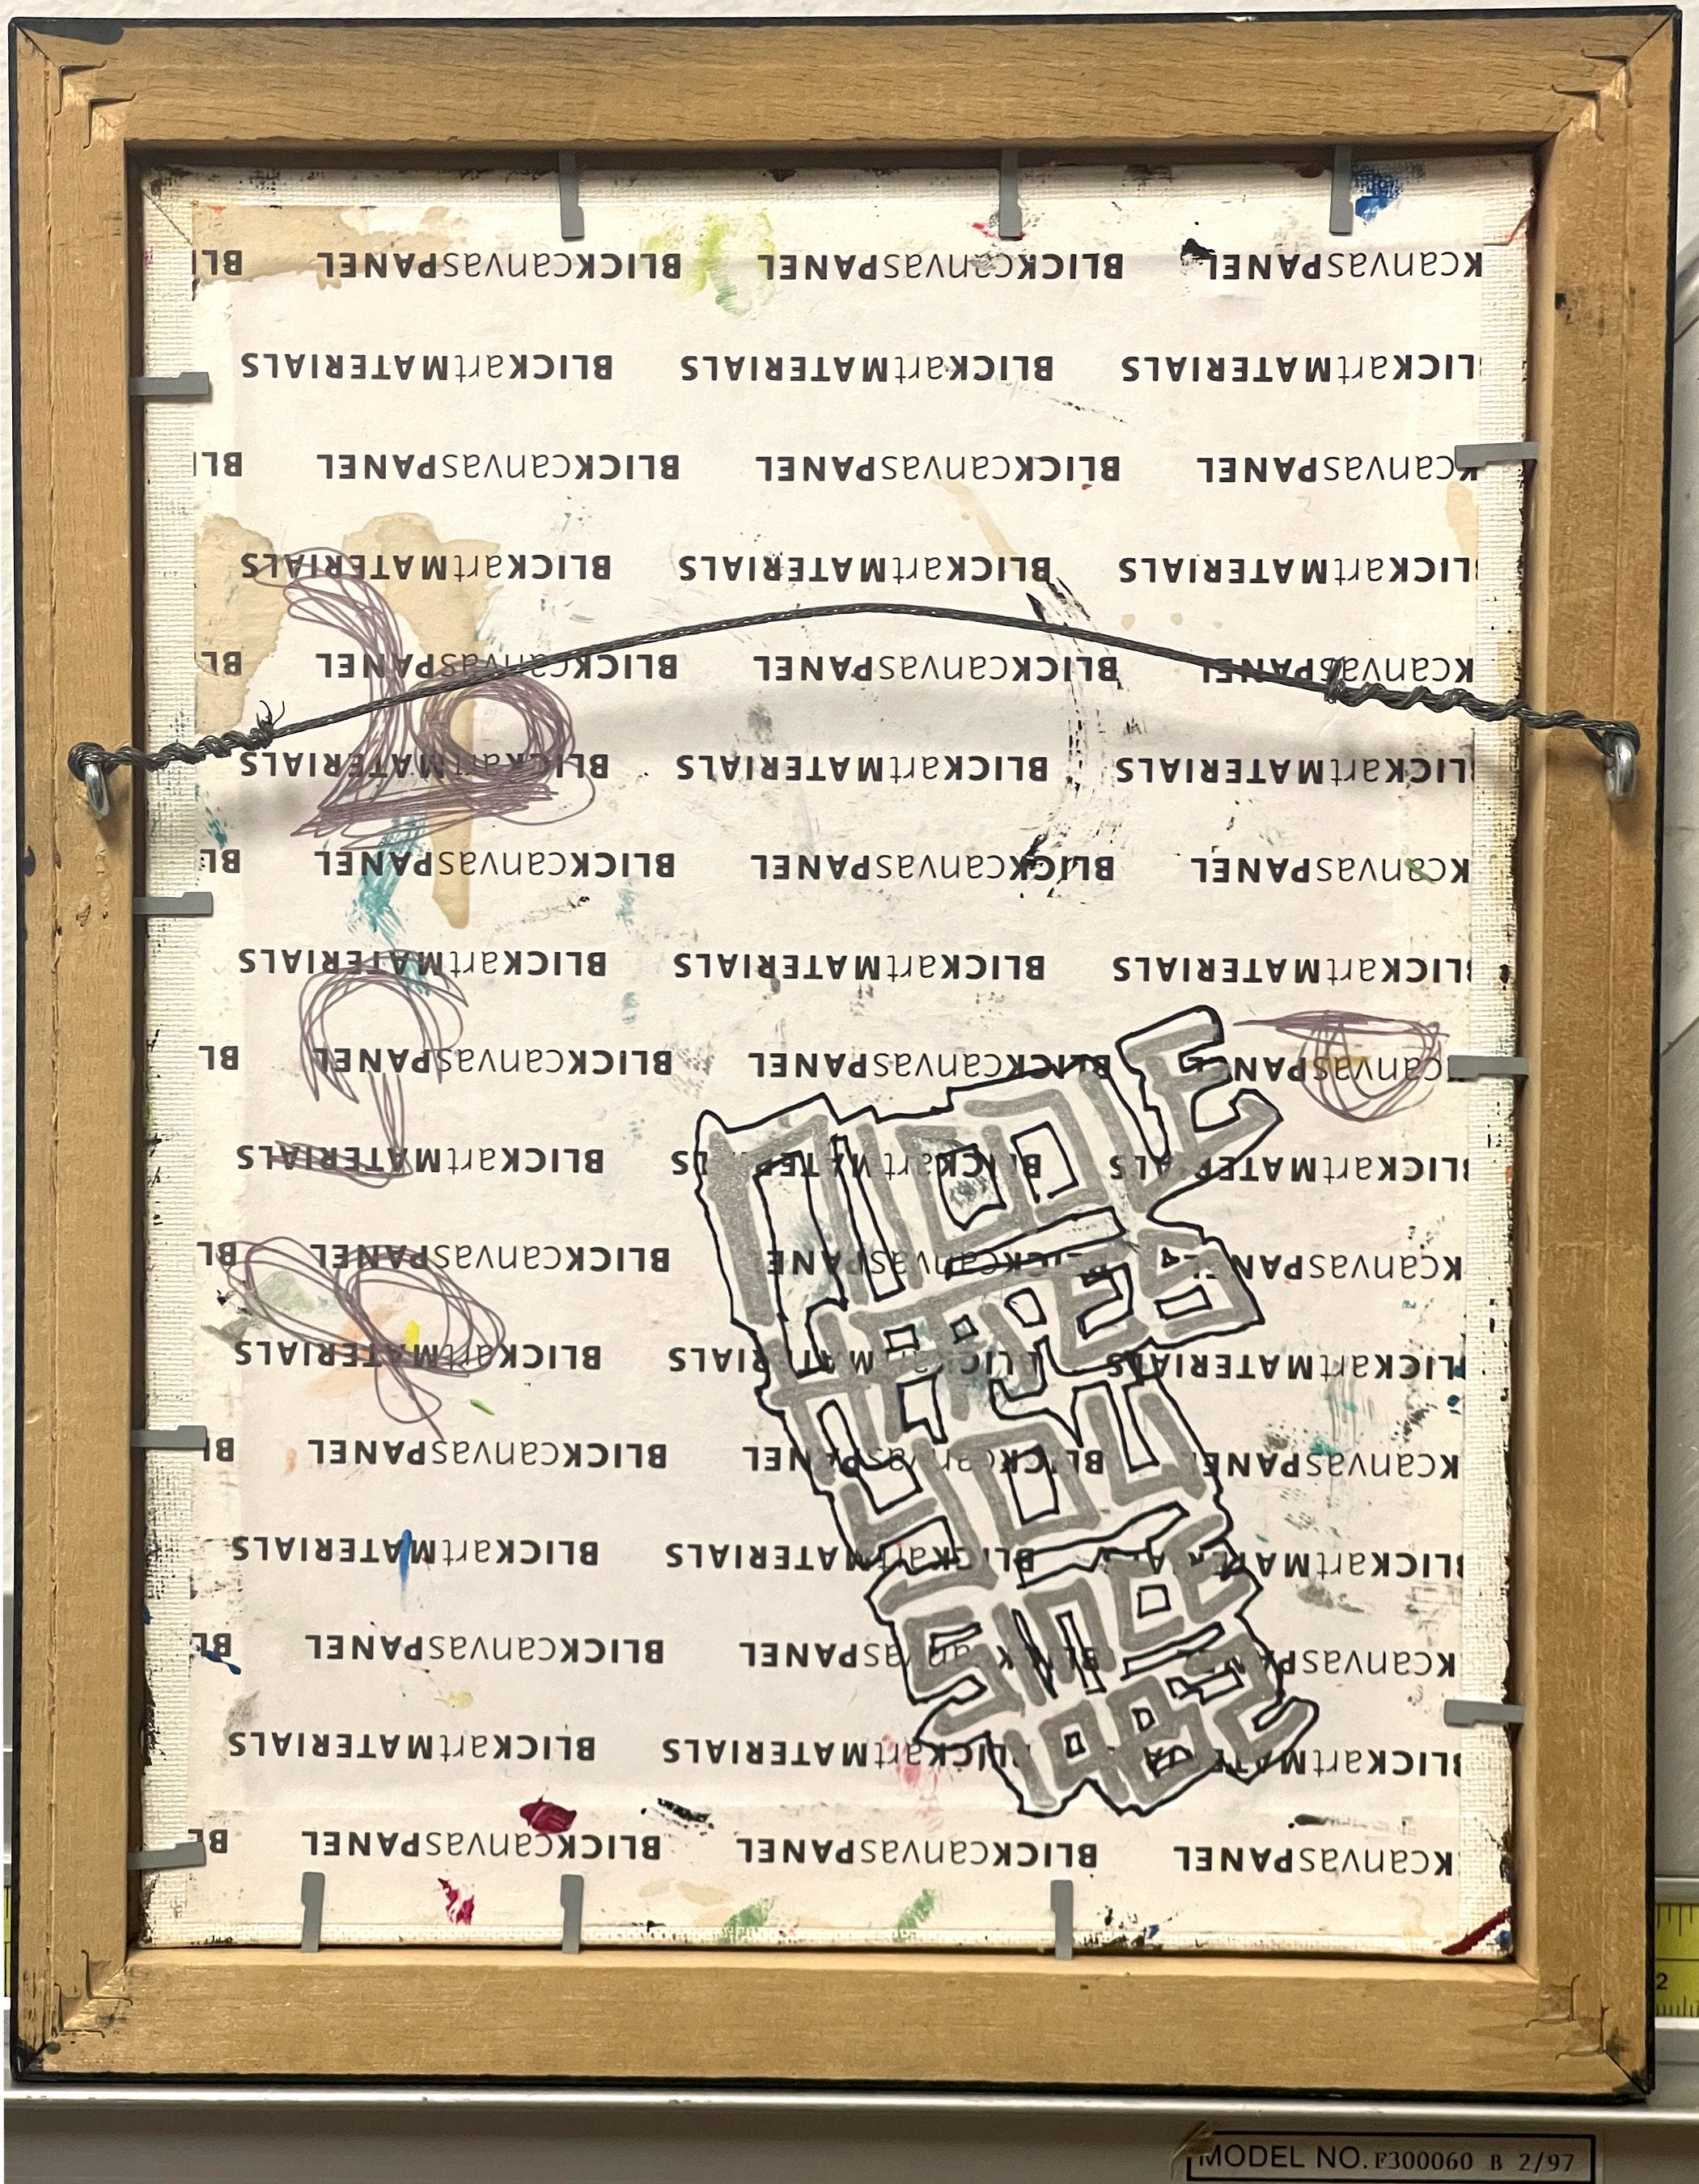 KcanvasPANEL BLICKcanvasPANEL BLICKcanvasPANEL BLI
LICKartMATERIALS BLICKartMATERIALS BLICKartMATERIALS
KcanvasPANEL BLICKcanvasPANEL BLICKcanvasPANEL BLI
LICKartMATERIALS BLICKartMATERIALS BLICKartMATERIALS
KcanvasPANEL BLICKcanvasPANEL BLICKcanvasPANEL BL
LICKartMATERIALS BLICKartMATERIALS BLICKartMATERIALS
KcanvasPANEL BLICKcanvasPANEL BLICKcanvasPANEL BL
LICKartMATERIALS BLICKartMATERIALS BLICKartMATERIALS
KcanvasPANEL BLICKcanvasPANEL BLICKcanvasPANEL BL
LICKartMATERIALS BLICKartMATERIALS BLICKartMATERIALS
KcanvasPANEL BLICKcanvasPANEL BLICKcanvasPANEL BL
LICKartMATERIALS BLICKartMATERIALS BLICKartMATERIALS
KcanvasPANEL BLICKcanvasPANEL BLICKcanvasPANEL BL
LICKartMATERIALS BLICKartMATERIALS BLICKartMATERIALS
KcanvasPANEL BLICKcanvasPANEL BLICKcanvasPANEL BL
LICKartMATERIALS BLICKartMATERIALS BLICKartMATERIALS
KcanvasPANEL BLICKcanvasPANEL BLICKcanvasPANEL BL
NICOLE
HATES
YOU
SINCE
1982
2
MODEL NO. F300060 B 2/97